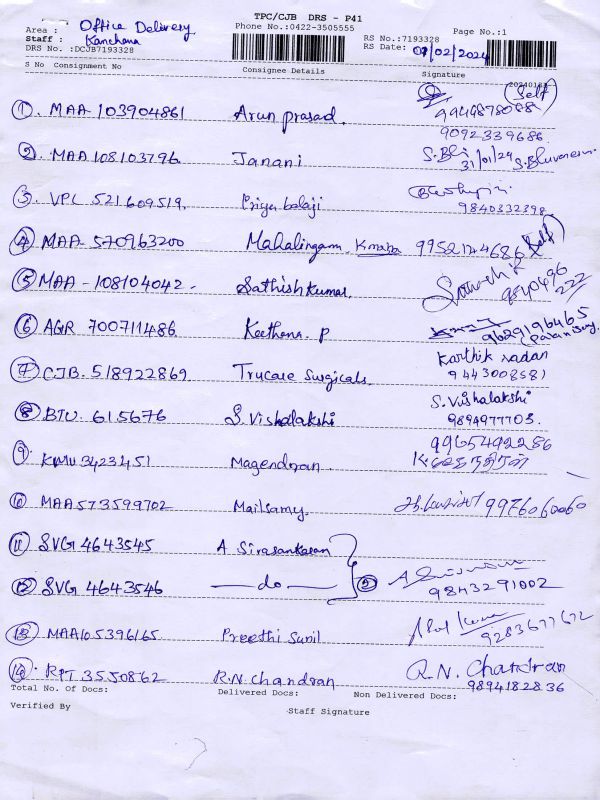 TPC/CJB DRS - P41
Area : Office Delivery Phone No.:0422-3505555 RS No.:7193328 Page No.:1
Staff : Kanchana RS Date: 01/02/2024
DRS No. :DCJB7193328
S No Consignment No Consignee Details Signature
① MAA 103904861 Arun prasad. (Self) 9949878088
9092339686
② MAA 108103796 Janani 31/01/24 S.Bhuvanesh
③ VPL 521609519. Priya balaji 9840332398
④ MAA- 570963200 Mahalingam. 9952144686 (Self)
⑤ MAA - 108104042 - Sathish Kumar. Sathish K 9840496222
⑥ AGR 700711486 Keethana. P 9629196465
⑦ CJB. 518922869 Trucare Surgicals. Karthik nadan
9443008581
⑧ BTU. 615676 S. Vishalakshi S. Vishalakshi
9894977703.
⑨ KMU 3423451 Magendran 9965492286
மகேந்திரன்
⑩ MAA 573599702 Mailsamy. 9976060060
⑪ SVG 4643545 A Sivasankaran
⑫ SVG 4643546 —do— ② 9843291002
⑬ MAA105396165 Preethi Sunil 9283677672
⑭ RPT 3550862 R.N. Chandran R.N. Chandran
9894182836
Total No. Of Docs: Delivered Docs: Non Delivered Docs:
Verified By Staff Signature